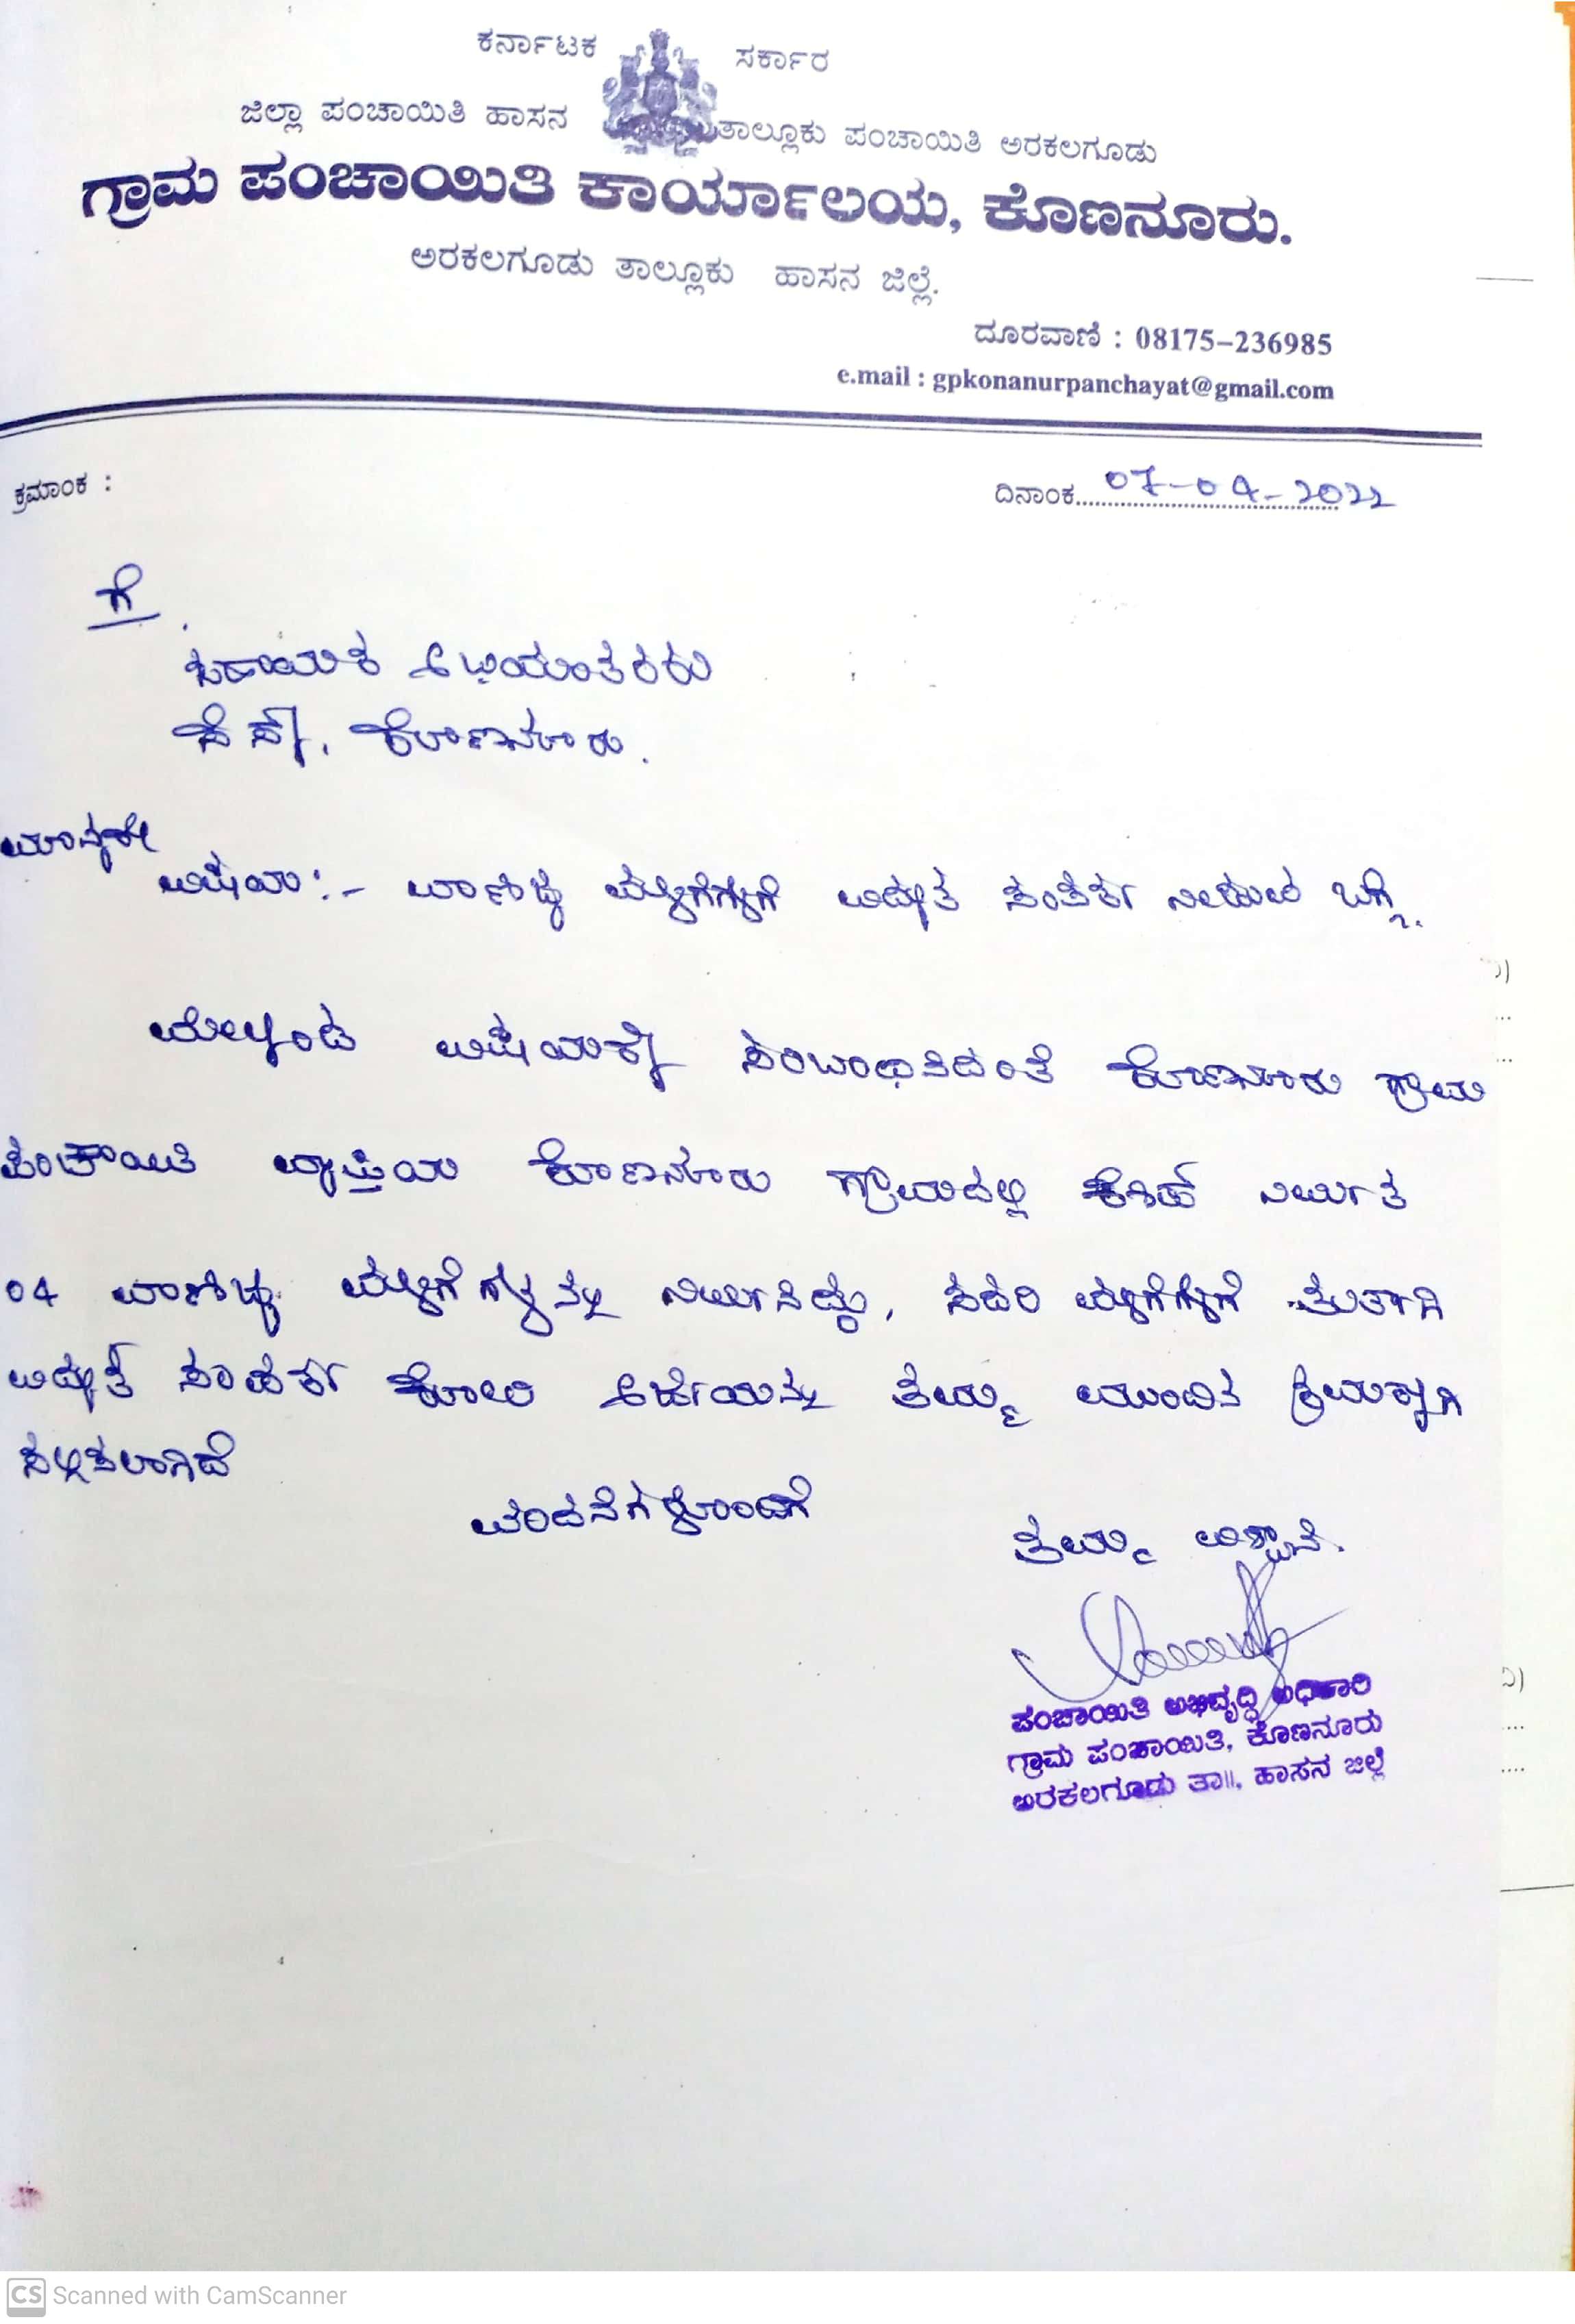 ಕರ್ನಾಟಕ ಸರ್ಕಾರ
ಜಿಲ್ಲಾ ಪಂಚಾಯಿತಿ ಹಾಸನ ತಾಲ್ಲೂಕು ಪಂಚಾಯಿತಿ ಅರಕಲಗೂಡು
ಗ್ರಾಮ ಪಂಚಾಯಿತಿ ಕಾರ್ಯಾಲಯ, ಕೊಣನೂರು.
ಅರಕಲಗೂಡು ತಾಲ್ಲೂಕು ಹಾಸನ ಜಿಲ್ಲೆ.
ದೂರವಾಣಿ : 08175-236985
e.mail : gpkonanurpanchayat@gmail.com
ಕ್ರಮಾಂಕ : ದಿನಾಂಕ 07-04-2022
ಗೆ
ಸಹಾಯಕ ಅಭಿಯಂತರರು
ಕೊಣನೂರು.
ಮಾನ್ಯರೇ
ವಿಷಯ:- ವಾಣಿಜ್ಯ ಮಳಿಗೆಗಳಿಗೆ ವಿದ್ಯುತ್ ಸಂಪರ್ಕ ನೀಡುವ ಬಗ್ಗೆ.
ಮೇಲ್ಕಂಡ ವಿಷಯಕ್ಕೆ ಸಂಬಂಧಿಸಿದಂತೆ ಕೊಣನೂರು ಗ್ರಾಮ
ಪಂಚಾಯಿತಿ ವ್ಯಾಪ್ತಿಯ ಕೊಣನೂರು ಗ್ರಾಮದಲ್ಲಿ
04 ವಾಣಿಜ್ಯ ಮಳಿಗೆಗಳನ್ನು ನಿರ್ಮಿಸಿದ್ದು, ಸದರಿ ಮಳಿಗೆಗಳಿಗೆ ತುರ್ತಾಗಿ
ವಿದ್ಯುತ್ ಸಂಪರ್ಕ ಕೋರಿ ಅರ್ಜಿಯನ್ನು ತಮ್ಮ ಮುಂದಿನ ಕ್ರಮಕ್ಕಾಗಿ
ಸಲ್ಲಿಸಲಾಗಿದೆ
ವಂದನೆಗಳೊಂದಿಗೆ
ತಮ್ಮ ವಿಶ್ವಾಸಿ.
ಪಂಚಾಯಿತಿ ಅಭಿವೃದ್ಧಿ ಅಧಿಕಾರಿ
ಗ್ರಾಮ ಪಂಚಾಯಿತಿ, ಕೊಣನೂರು
ಅರಕಲಗೂಡು ತಾ||, ಹಾಸನ ಜಿಲ್ಲೆ
CS Scanned with CamScanner